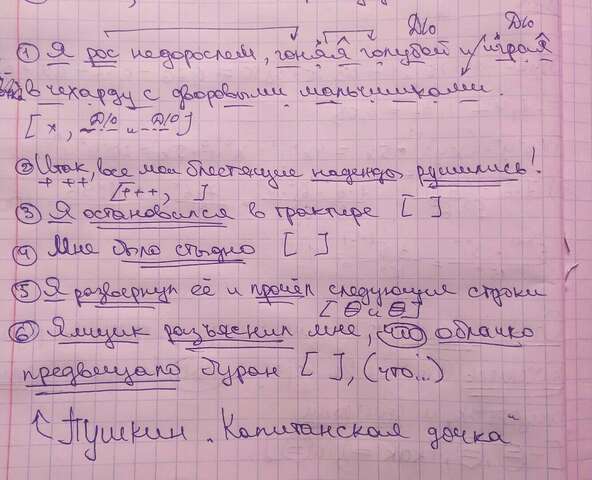 Д/о Д/о
① Я рос недорослем, гоняя голубей и играя
в чехарду с дворовыми мальчишками.
[х, Д/о и Д/о]
② Итак, все мои блестящие надежды рушились!
[+++, ]
③ Я остановился в трактире [ ]
④ Мне было стыдно [ ]
⑤ Я развернул её и прочёл следующие строки
[О и О]
⑥ Ямщик разъяснил мне, что облачко
предвещало буран [ ], (что...)
Пушкин "Капитанская дочка"